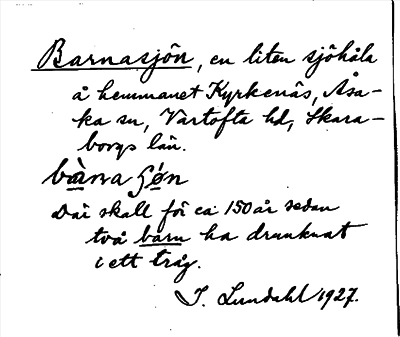 Barnasjön, en liten sjöhåla
å hemmanet Kyrkenäs, Åsa-
ka sn, Vartofta hd, Skara-
borgs län.
bàrna
Där skall för ca 150 år sedan
två barn ha drunknat
i ett tråg.
I. Lundahl 1927.